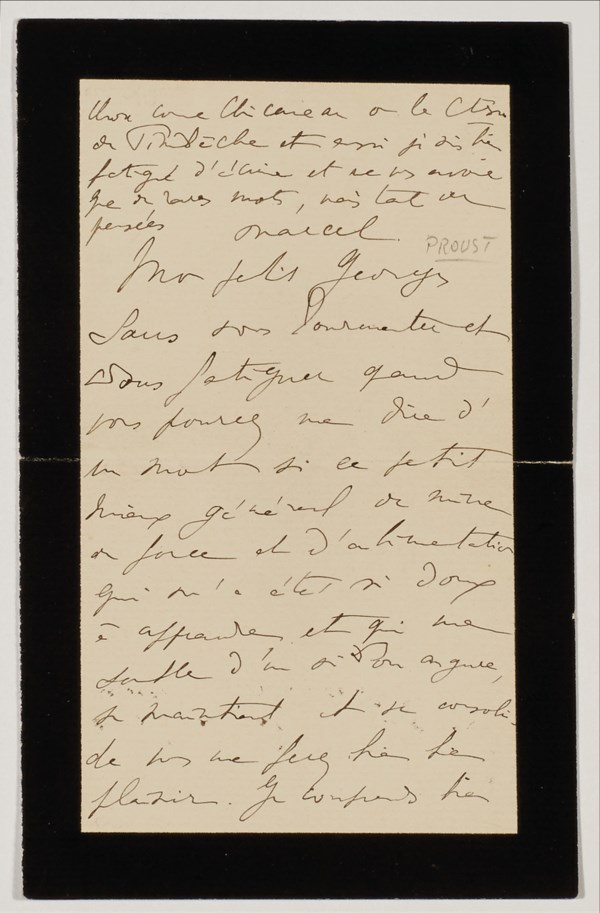 comme Chicaneau ou la Ctesse
de Pimbêche et aussi je suis bien
fatigué d'écrire et ne vs envoie
que de rares mots, mais tat de
pensées Marcel
PROUST
Mon petit Georges
Sans vous tourmenter et
vous fatiguer quand
vous pourrez me dire d'
un mot si ce petit
mieux général de mine
de force et d'alimentation
qui m'a été si doux
à apprendre et qui me
semble d'un si bon augure,
se maintient et se consoli-
de vs me ferez bien bien
plaisir. Je comprends bien